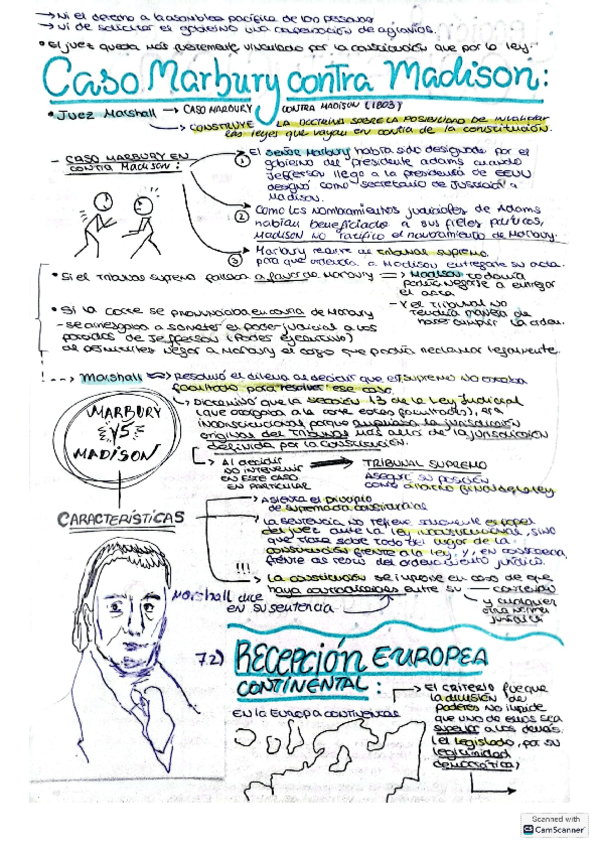 → Ni el derecho a la asamblea pacífica de las personas
→ Ni de solicitar al gobierno una reparación de agravios.
• El juez queda más fuertemente vinculado por la constitución que por la ley.
Caso Marbury contra Madison:
• Juez Marshall → CASO MARBURY CONTRA MADISON (1803)
→ CONSTRUYE LA DOCTRINA SOBRE LA POSIBILIDAD DE INVALIDAR
las leyes que vayan en contra de la constitución.
- CASO MARBURY EN CONTRA Madison:
① El señor Marbury había sido designado por el
gobierno del presidente adams cuando
Jefferson llegó a la presidencia de EEUU
designó como secretario de Justicia a
Madison.
② Como los nombramientos judiciales de Adams
habían beneficiado a sus fieles políticos,
Madison no ratificó el nombramiento de Marbury.
③ Marbury recurre al Tribunal Supremo
para que ordenara a Madison entregarle su acta.
• Si el Tribunal Supremo fallaba a favor de Marbury ⇒ Madison todavía
podía negarse a entregar
el acta
- Y el Tribunal no
tendría manera de
hacer cumplir la orden.
• Si la corte se pronunciaba en contra de Marbury
- se arriesgaba a someter el poder judicial a los
de Jefferson (Poder ejecutivo)
al permitirles negar a Marbury el cargo que podría reclamar legalmente.
--> Marshall ⇒ Resolvió el dilema al decidir que el T. supremo no estaba
facultado para resolver ese caso.
↳ Dictaminó que la sección 13 de la Ley Judicial
(que otorgaba a la corte estas facultades), era
inconstitucional porque la jurisdicción
original del Tribunal más allá de la jurisdicción
definida por la Constitución.
MARBURY
VS
MADISON
↳ Al decidir
NO INTERVENIR
EN ESTE CASO
EN PARTICULAR
TRIBUNAL SUPREMO
ASEGURÓ SU POSICIÓN
como árbitro final de la ley
CARACTERÍSTICAS
→ Asienta el principio
de supremacía constitucional
→ La sentencia no refiere solamente el papel
del juez ante la ley inconstitucional, sino
que trata sobre todo del lugar de la
constitución frente a la ley, y, en consecuencia,
frente al resto del ordenamiento jurídico.
!!!
→ La constitución se impone en caso de que
haya contradicciones entre su → contenido
y cualquier
otra norma
jurídica
Marshall dice
en su sentencia
7.2) RECEPCIÓN EUROPEA
CONTINENTAL:
EN la EUROPA CONTINENTAL
→ El criterio fue que
la división de
poderes no impide
que uno de ellos sea
superior a los demás.
(el legislativo, por su
legitimidad
democrática)
Scanned with
CamScanner